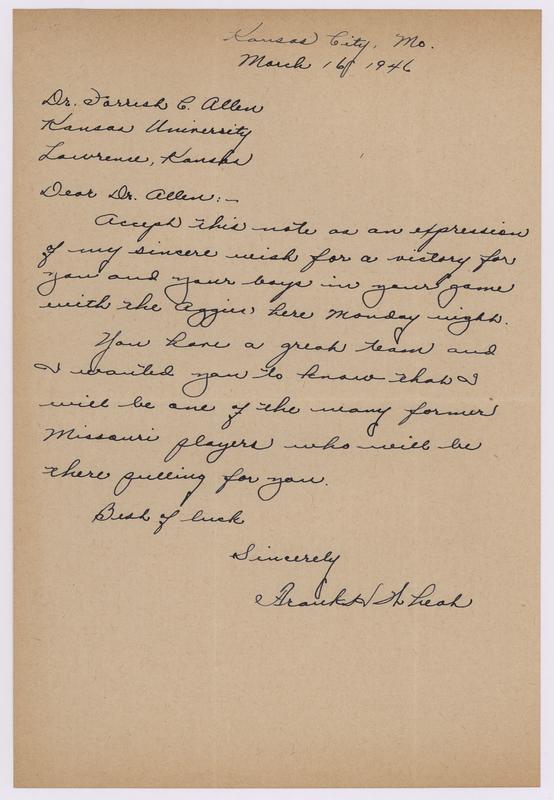 Kansas City, Mo.
March 16, 1946
Dr. Forrest C. Allen
Kansas University
Lawrence, Kansas
Dear Dr. Allen:-
Accept this note as an expression
of my sincere wish for a victory for
you and your boys in your game
with the Aggies here Monday night.
You have a great team and
I wanted you to know that I
will be one of the many former
Missouri players who will be
there pulling for you.
Best of luck
Sincerely
Frank